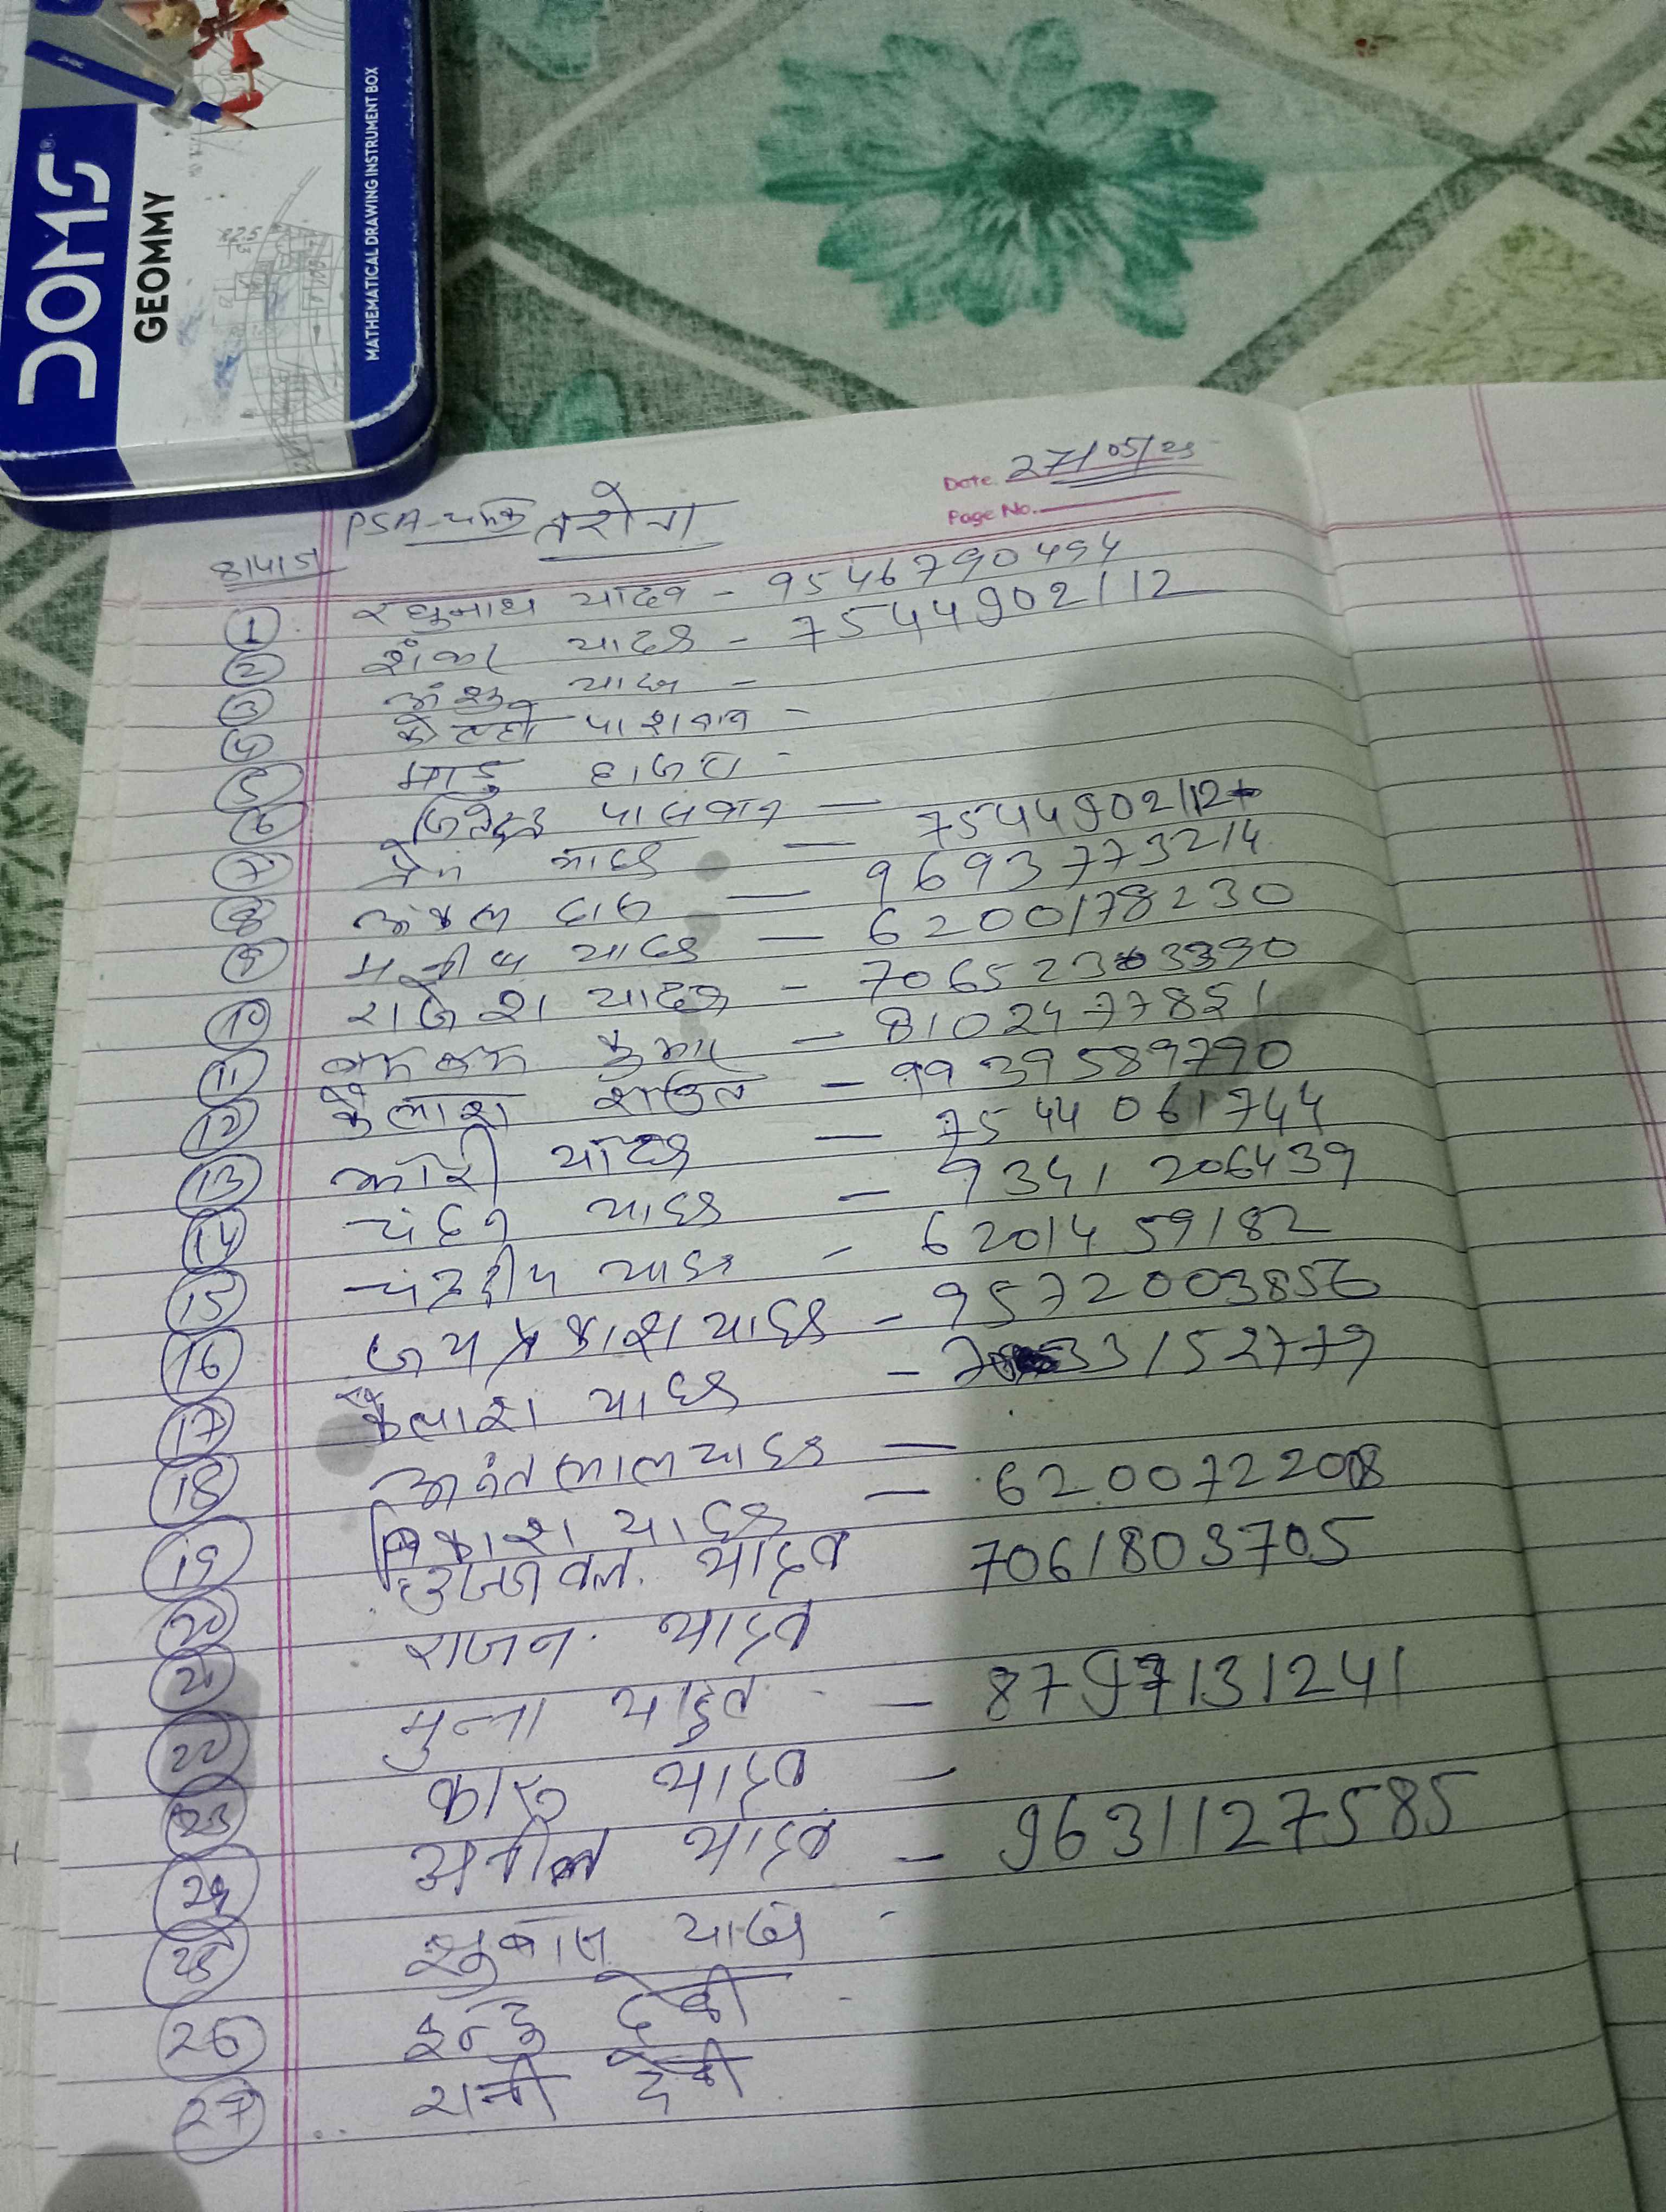 DOMS®
GEOMMY
MATHEMATICAL DRAWING INSTRUMENT BOX
Date. 27/05/23
Page No.
PSA- तरोना
① रघुनाथ यादव - 9546790494
② शंकर यादव - 7544902112
③ अंशु यादव -
④ पाशवान -
⑤ दास
⑥ जितेन्द्र पासवान —
⑦ प्रेम यादव — 7544902112
⑧ दास — 9693773214
⑨ मनीष यादव — 6200178230
⑩ राजेश यादव - 7065233390
⑪ कुमार — 8102477851
⑫ कैलाश राउत — 9939589790
⑬ यादव — 7544061744
⑭ चंदन यादव — 9341206439
⑮ चंद्रदीप यादव - 6201459182
⑯ जयप्रकाश यादव - 9572003856
⑰ कैलाश यादव - 33152779
⑱ अनंतलाल यादव —
⑲ विकाश यादव — 6200722008
⑳ उज्जवल यादव 7061803705
21 राजन यादव
22 मुन्ना यादव - 8797131241
23 कारू यादव -
24 अनील यादव - 9631127585
25 यादव -
26 इन्दु देवी -
27 रानी देवी